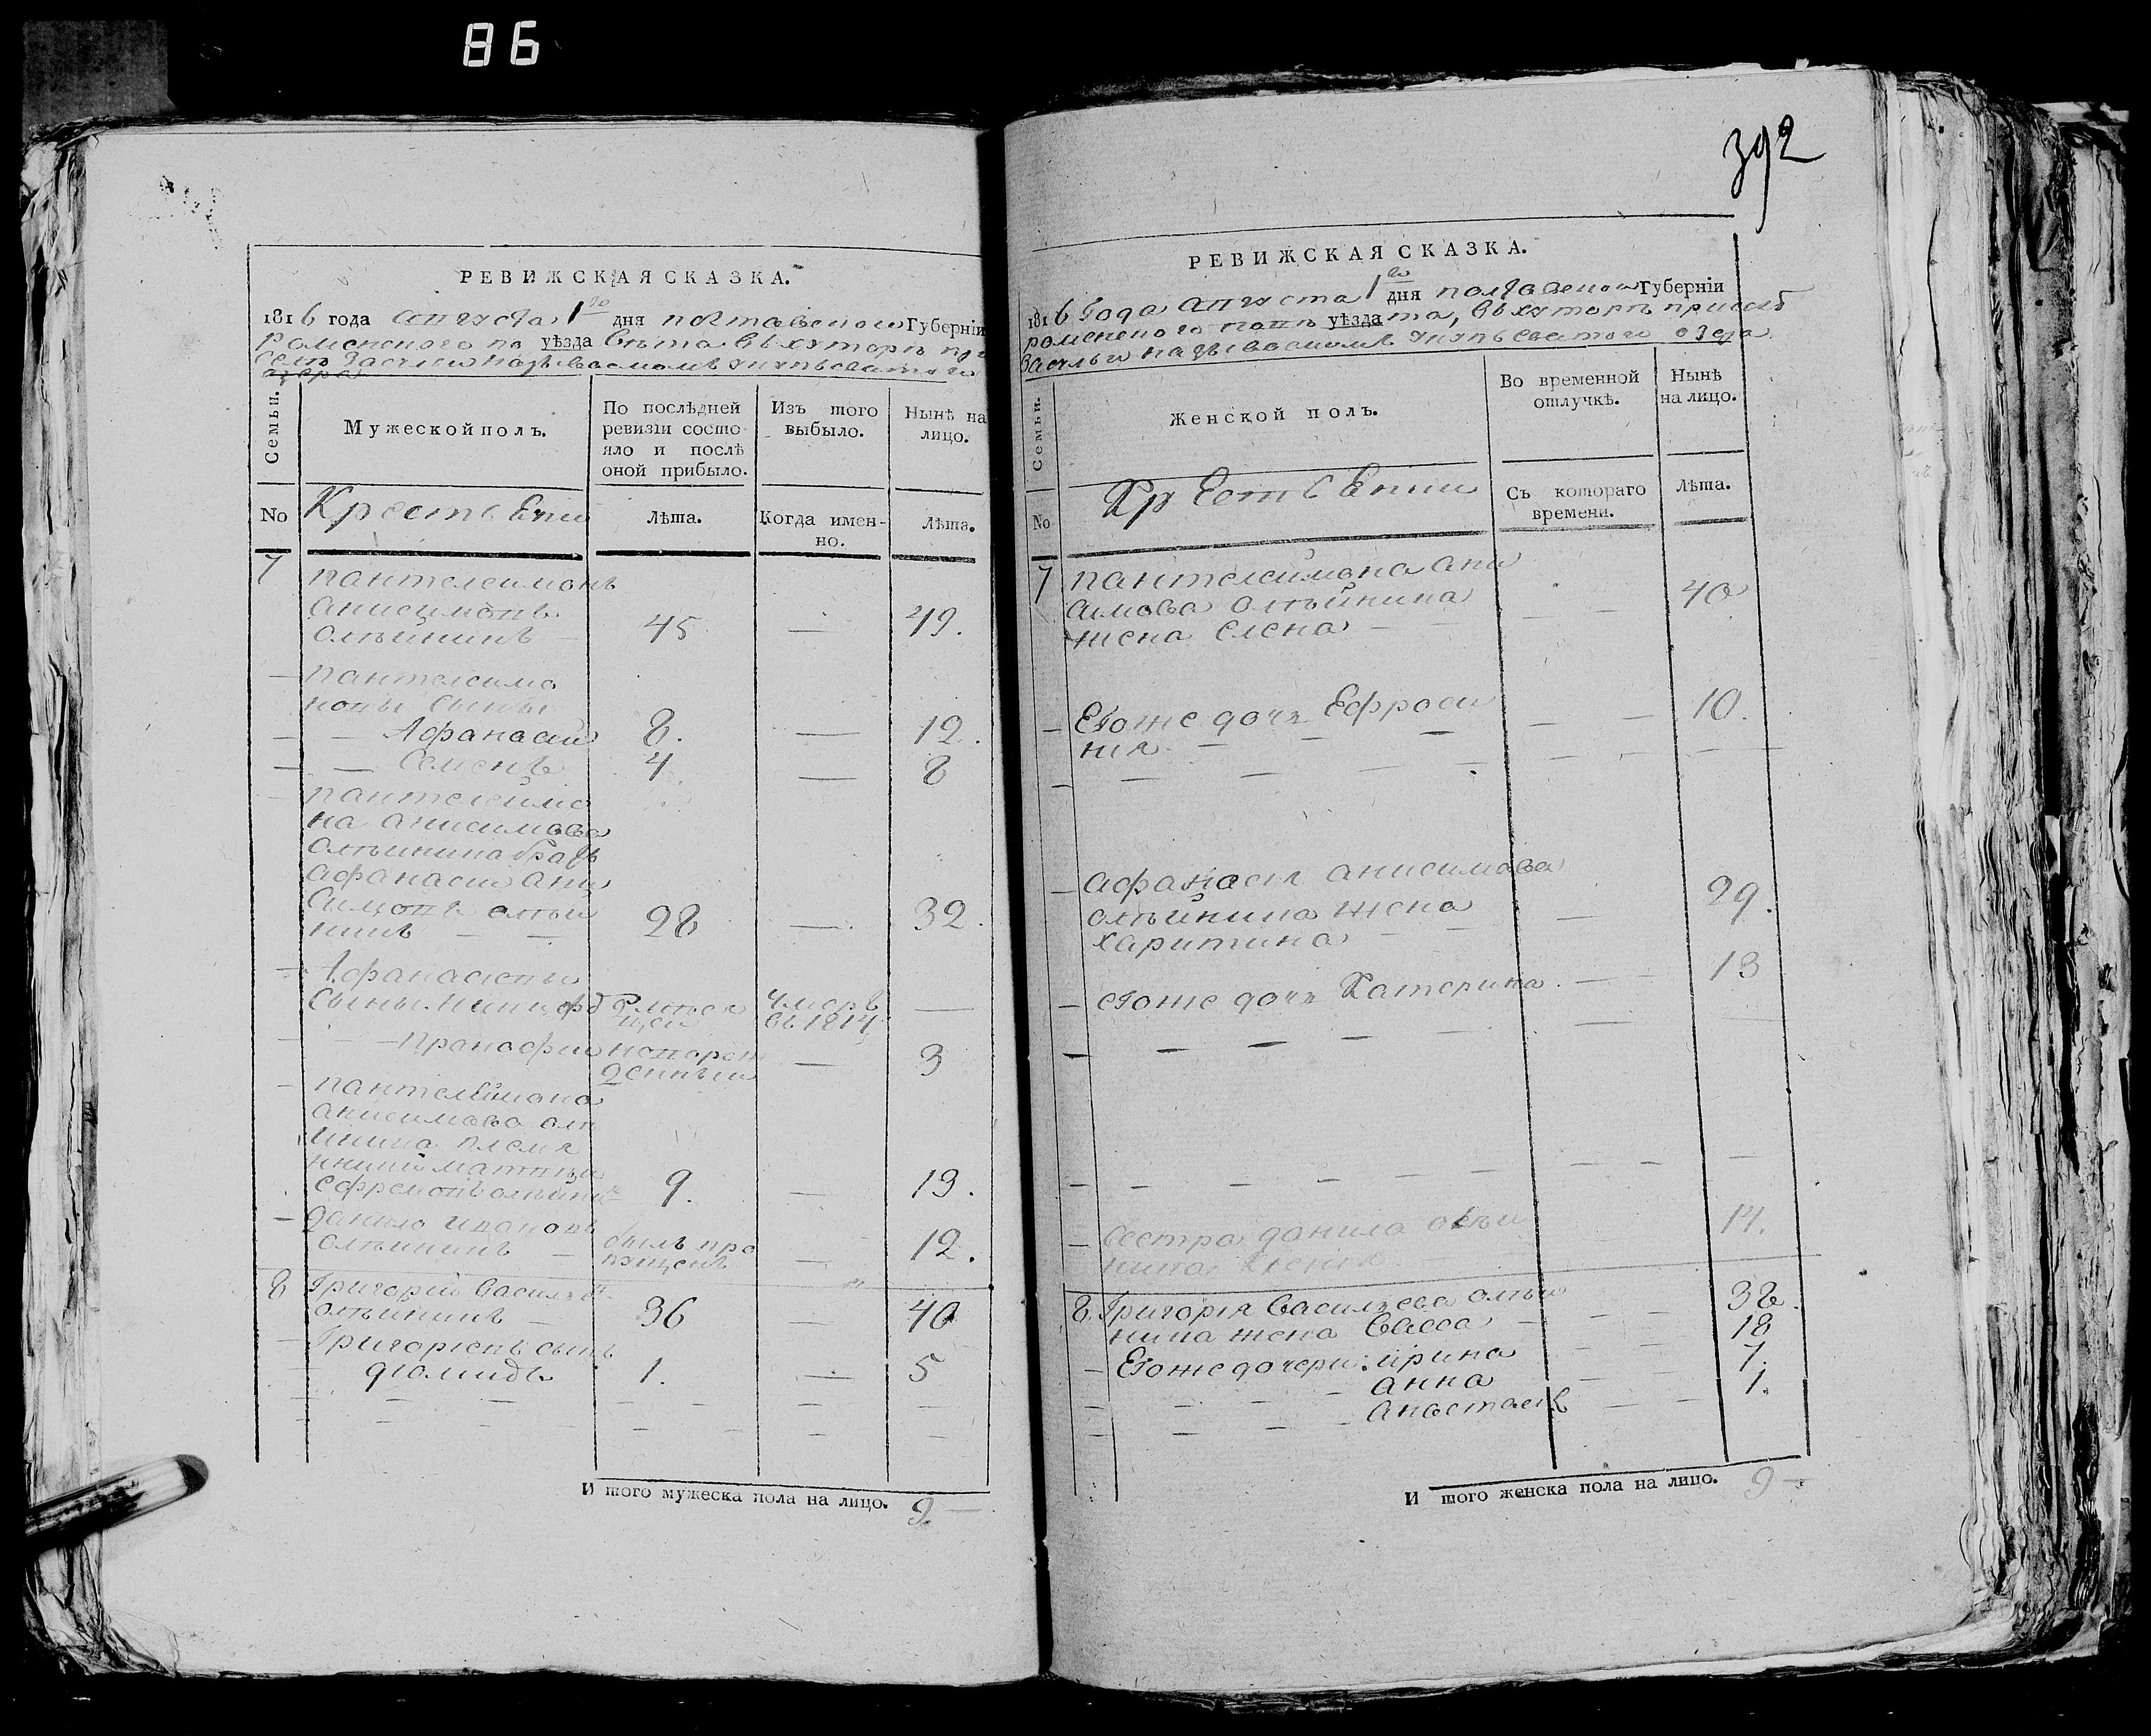 86
392
РЕВИЖСКАЯ СКАЗКА.
1816 года августа 1го дня полтавской Губерніи
роменского по уѣзда вѣта въ хуторѣ при
селѣ Засулью называемомъ
озера
Семьи.
Мужеской полъ.
По послѣдней ревизіи состояло и послѣ оной прибыло.
Изъ того выбыло.
Нынѣ на лицо.
No
Крестьяни
лѣта.
Когда именно.
Лѣта.
7
пантелеимонъ
анисимовъ
олѣйникъ 45 — 49.
— пантелеимо
новы сыны
— — Афанасий 8. — 12.
— — Семенъ 4 — 8
— пантелеймо
на анисимова
олѣиника братъ
афанасий ани
симовъ олѣй
никъ — — 28 — 32.
— Афанасиевы
сыны. 2 умеръ въ 1814 —
— — новорож
денный — 3
— пантелеймона
анисимова олѣ
йника племя
нникъ матвѣй
ефремовъ олѣйник 9. — 13.
— Данило ивановъ
олѣиникъ — былъ про
пущенъ — 12.
8 Григорий Васильев
олѣиникъ — 36 — 40
— Григориевъ сынъ
— диомидъ 1. — 5
И того мужеска пола на лицо. 9 —
РЕВИЖСКАЯ СКАЗКА.
1816 года августа 1го дня полтавской Губерніи
роменского пов уѣзда та, въ хуторѣ при селѣ
Засулью называемомъ святого озера
Семьи.
Женской полъ.
Во временной отлучкѣ.
Нынѣ на лицо.
No
Крестьянки
Съ котораго времени.
Лѣта.
7 пантелеймона ани
симова олѣйника
жена елена — — 40
— Егоже дочь Ефроси
ния — — — 10.
— афанасия анисимова
олѣйника жена
харитина — 29.
— егоже дочь Катерина. — 13
— сестра данила олѣй
ника
8. Григория Васильева олѣй
ника жена Васса — 38.
— Егоже дочери: ирина 18
— анна 7.
— анастасия 1.
И того женска пола на лицо. 9 —